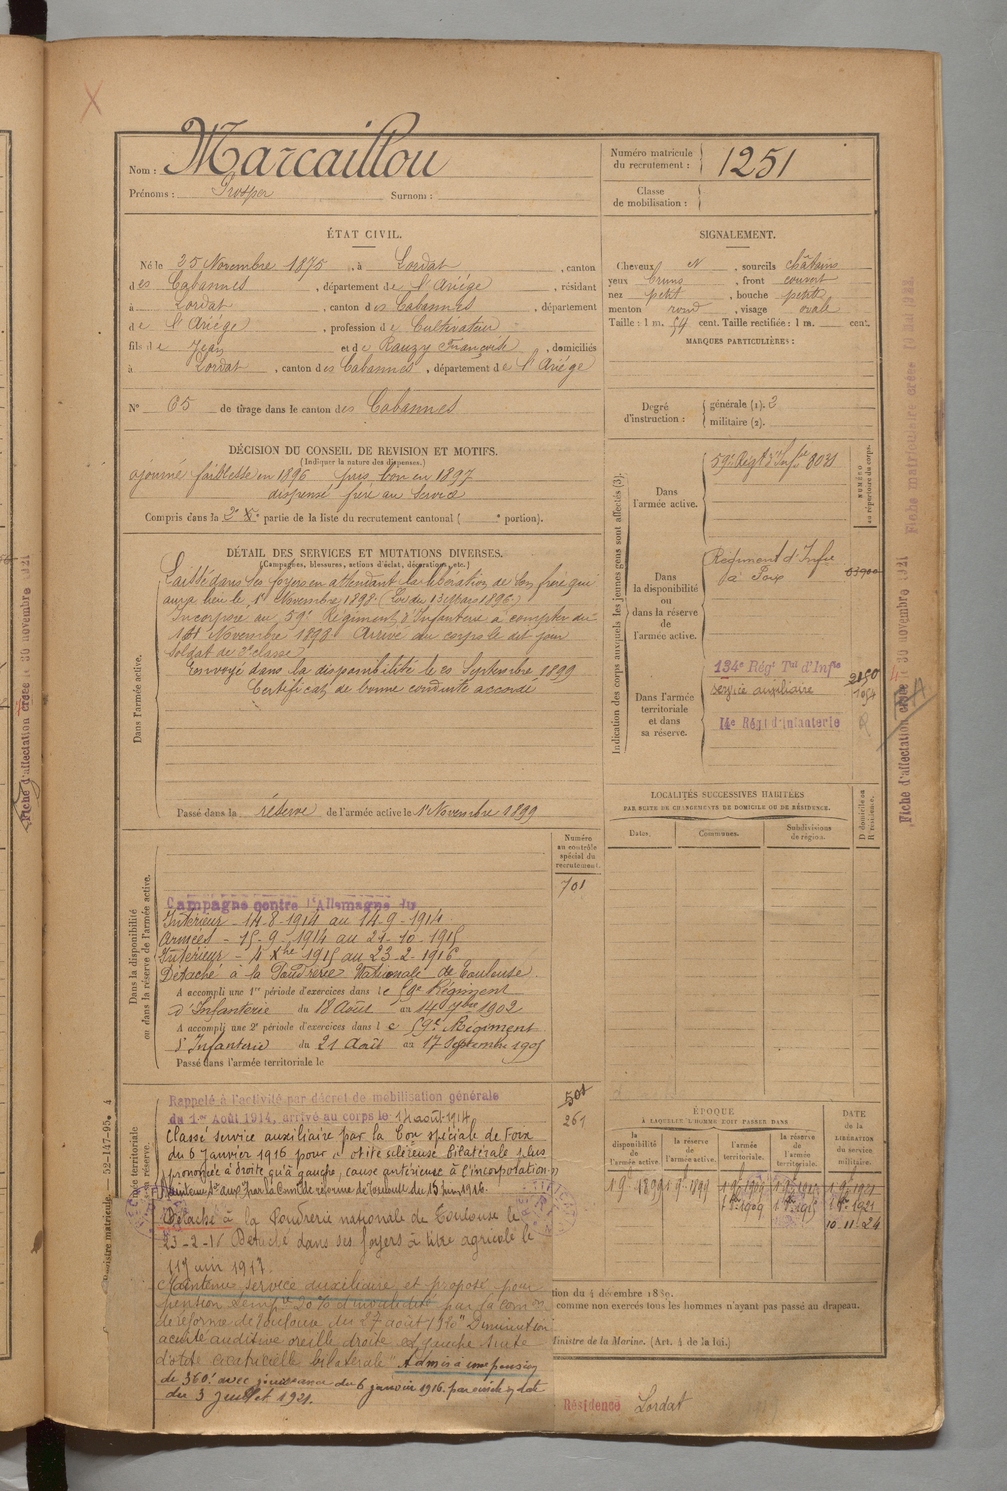 Nom : Marcaillou
Prénoms : Prosper Surnom :
Numéro matricule du recrutement : 1251
Classe de mobilisation :
ÉTAT CIVIL.
Né le 25 Novembre 1875, à Lordat, canton
des Cabannes, département de l'Ariége, résidant
à Lordat, canton des Cabannes, département
de l'Ariége, profession de Cultivateur
fils de Jean et de Rauzy Françoise, domiciliés
à Lordat, canton des Cabannes, département de l'Ariége
N° 65 de tirage dans le canton des Cabannes
SIGNALEMENT.
Cheveux N, sourcils châtains
yeux bruns, front couvert
nez petit, bouche petite
menton rond, visage ovale
Taille : 1 m. 54 cent. Taille rectifiée : 1 m. cent.
MARQUES PARTICULIÈRES :
Degré d'instruction :
générale (1). 3
militaire (2).
DÉCISION DU CONSEIL DE REVISION ET MOTIFS.
(Indiquer la nature des dispenses.)
ajourné faiblesse en 1896 pris bon en 1897
dispensé frère au service
Compris dans la 2e partie de la liste du recrutement cantonal ( e portion).
DÉTAIL DES SERVICES ET MUTATIONS DIVERSES.
(Campagnes, blessures, actions d'éclat, décorations, etc.)
Dans l'armée active.
Laissé dans ses foyers en attendant la libération de son frère qui
aura lieu le 1er Novembre 1898 (Loi du 13 Mars 1896)
Incorporé au 59e Régiment d'Infanterie à compter du
14 Novembre 1898 Arrivé au corps le dit jour
soldat de 2e classe
Envoyé dans la disponibilité le 20 Septembre 1899
Certificat de bonne conduite accordé
Passé dans la réserve de l'armée active le 1er Novembre 1899
Indication des corps auxquels les jeunes gens sont affectés (3).
NUMÉRO au répertoire du corps.
Dans l'armée active.
59e Régt d'Infie 8031
Dans la disponibilité ou dans la réserve de l'armée active.
Régiment d'Infie
à Foix
Dans l'armée territoriale et dans sa réserve.
134e Régt Tal d'Infie
service auxiliaire
14e Régt d'infanterie
LOCALITÉS SUCCESSIVES HABITÉES
PAR SUITE DE CHANGEMENTS DE DOMICILE OU DE RÉSIDENCE.
Dates. Communes. Subdivisions de région.
D domicile ou R résidence.
Numéro au contrôle spécial du recrutement.
701
Dans la disponibilité ou dans la réserve de l'armée active.
Campagne contre l'Allemagne du
Intérieur - 14-8-1914 au 14-9-1914
Armées - 15-9-1914 au 21-10-1915
Intérieur - 4 Xbre 1915 au 23-2-1916
Détaché à la Poudrerie Nationale de Toulouse.
A accompli une 1re période d'exercices dans le 59e Régiment
d'Infanterie du 18 Août au 14 7bre 1902
A accompli une 2e période d'exercices dans le 59e Régiment
d'Infanterie du 21 Août au 17 Septembre 1905
Passé dans l'armée territoriale le
501
261
Rappelé à l'activité par décret de mobilisation générale
du 1er Août 1914, arrivé au corps le 14 août 1914
Classé service auxiliaire par la Con spéciale de Foix
du 6 Janvier 1916 pour "otite scléreuse bilatérale plus
prononcée à droite qu'à gauche, cause antérieure à l'incorporation"
Maintenu St aux. par la Comon de réforme de Toulouse du 15 juin 1916.
Détaché à la Poudrerie nationale de Toulouse le
23-2-16 Détaché dans ses foyers à titre agricole le
Juin 1917.
Maintenu service auxiliaire et proposé pour
pension temp. 20% d'invalidité par la Comon
de réforme de Toulouse du 27 août 1920 "Diminution
acuité auditive oreille droite et gauche suite
d'otite cicatricielle bilatérale" Admis à une pension
de 360f avec jouissance du 6 janvier 1916. par
du 3 Juillet 1921.
ÉPOQUE
À LAQUELLE L'HOMME DOIT PASSER DANS
la disponibilité de l'armée active
la réserve de l'armée active.
l'armée territoriale.
la réserve de l'armée territoriale.
DATE de la LIBÉRATION du service militaire.
10-11-24
tion du 4 décembre 1889.
comme non exercés tous les hommes n'ayant pas passé au drapeau.
Ministre de la Marine. (Art. 4 de la loi.)
Résidence Lordat
Fiche d'affectation créée le 30 novembre 1921
Fiche d'affectation créée le 30 novembre 1921